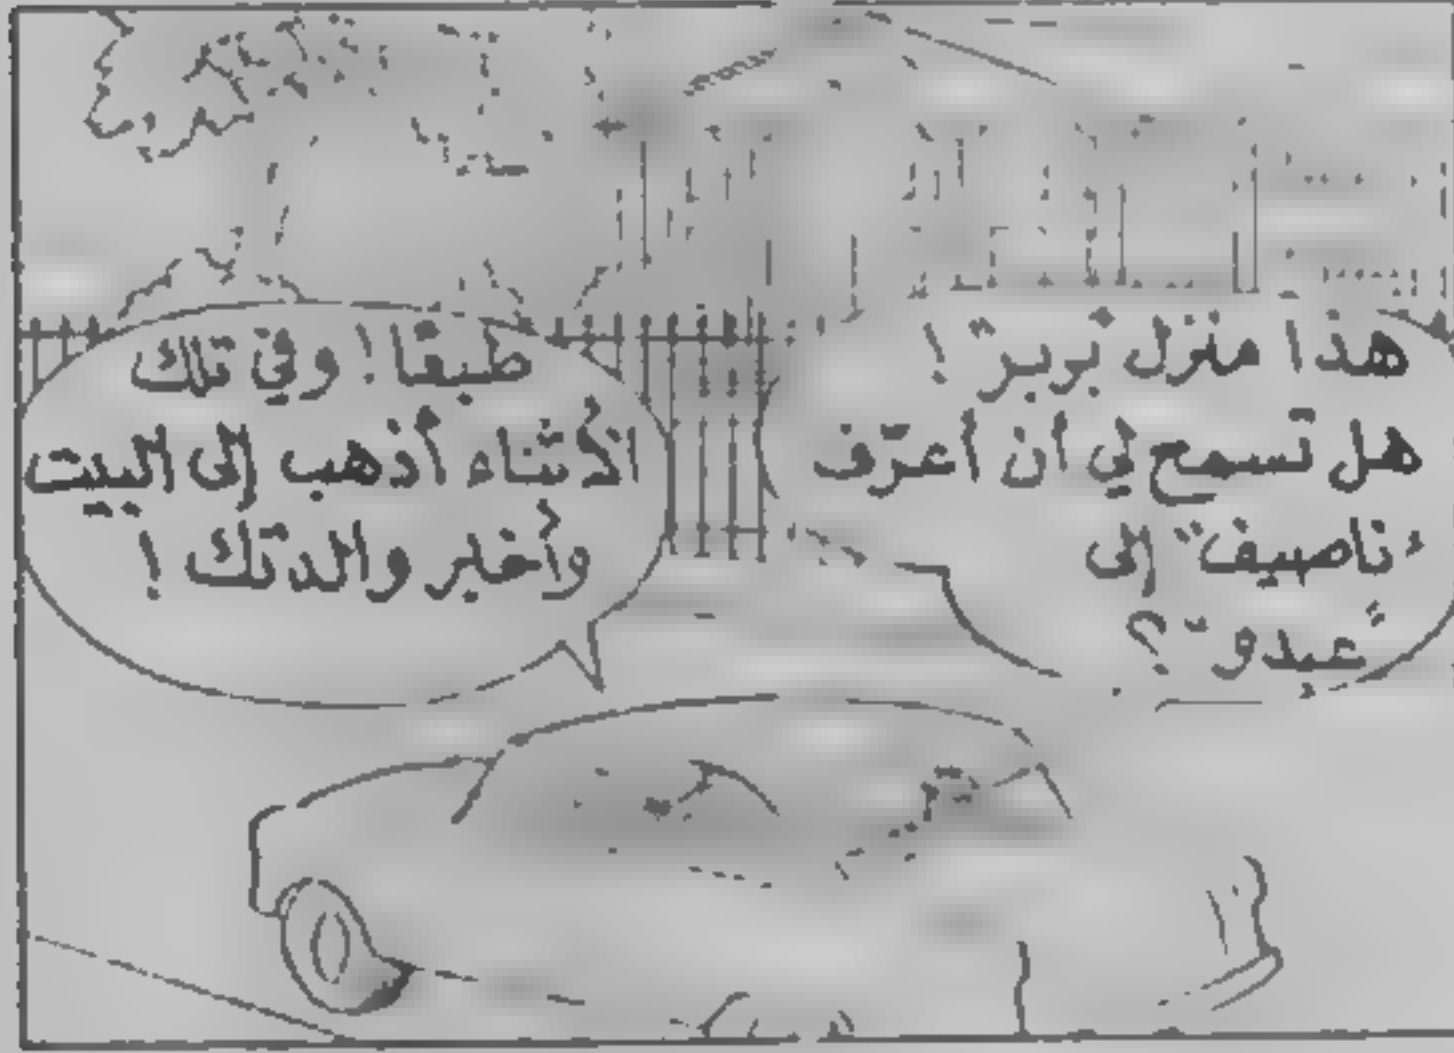 هذا منزل "بربر"!
هل تسمح لي أن أعرّف
"ناصيف" إلى
"عبدو"؟
طبعًا! وفي تلك
الأثناء أذهب إلى البيت
وأخبر والدتك!